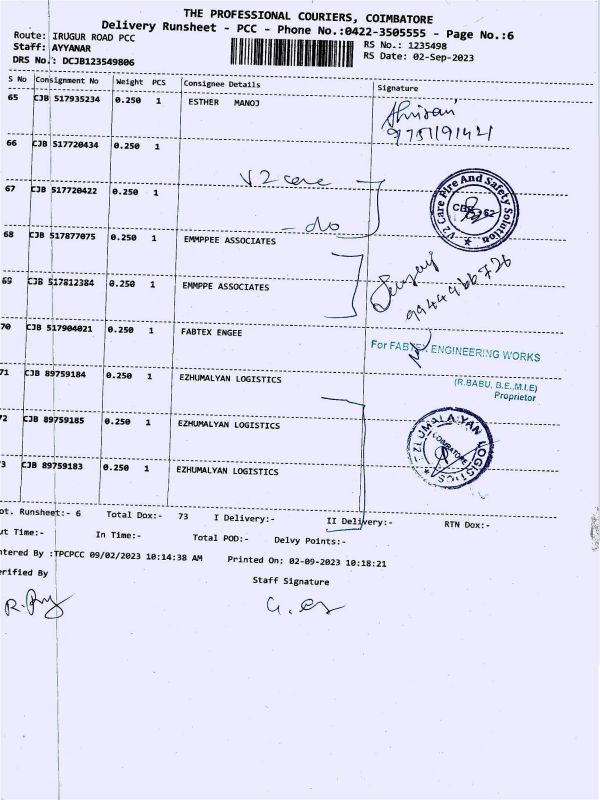 THE PROFESSIONAL COURIERS, COIMBATORE
Delivery Runsheet - PCC - Phone No.:0422-3505555 - Page No.:6
Route: IRUGUR ROAD PCC
RS No.: 1235498
Staff: AYYANAR
RS Date: 02-Sep-2023
DRS No.: DCJB123549806
S No Consignment No Weight PCS Consignee Details Signature
65 CJB 517935234 0.250 1 ESTHER MANOJ
9751191421
66 CJB 517720434 0.250 1
V2 care
67 CJB 517720422 0.250 1
V2 Care Fire And Safety Solution
- do
68 CJB 517877075 0.250 1 EMMPPEE ASSOCIATES
69 CJB 517812384 0.250 1 EMMPPE ASSOCIATES
9944466726
70 CJB 517904021 0.250 1 FABTEX ENGEE
For FABTEX ENGINEERING WORKS
71 CJB 89759184 0.250 1 EZHUMALYAN LOGISTICS
(R.BABU, B.E.,M.I.E)
Proprietor
72 CJB 89759185 0.250 1 EZHUMALYAN LOGISTICS
EZLUMALAYAN LOGISTICS
COIMBATORE
73 CJB 89759183 0.250 1 EZHUMALYAN LOGISTICS
ot. Runsheet:- 6 Total Dox:- 73 I Delivery:- II Delivery:- RTN Dox:-
ut Time:- In Time:- Total POD:- Delvy Points:-
ntered By :TPCPCC 09/02/2023 10:14:38 AM Printed On: 02-09-2023 10:18:21
erified By
Staff Signature